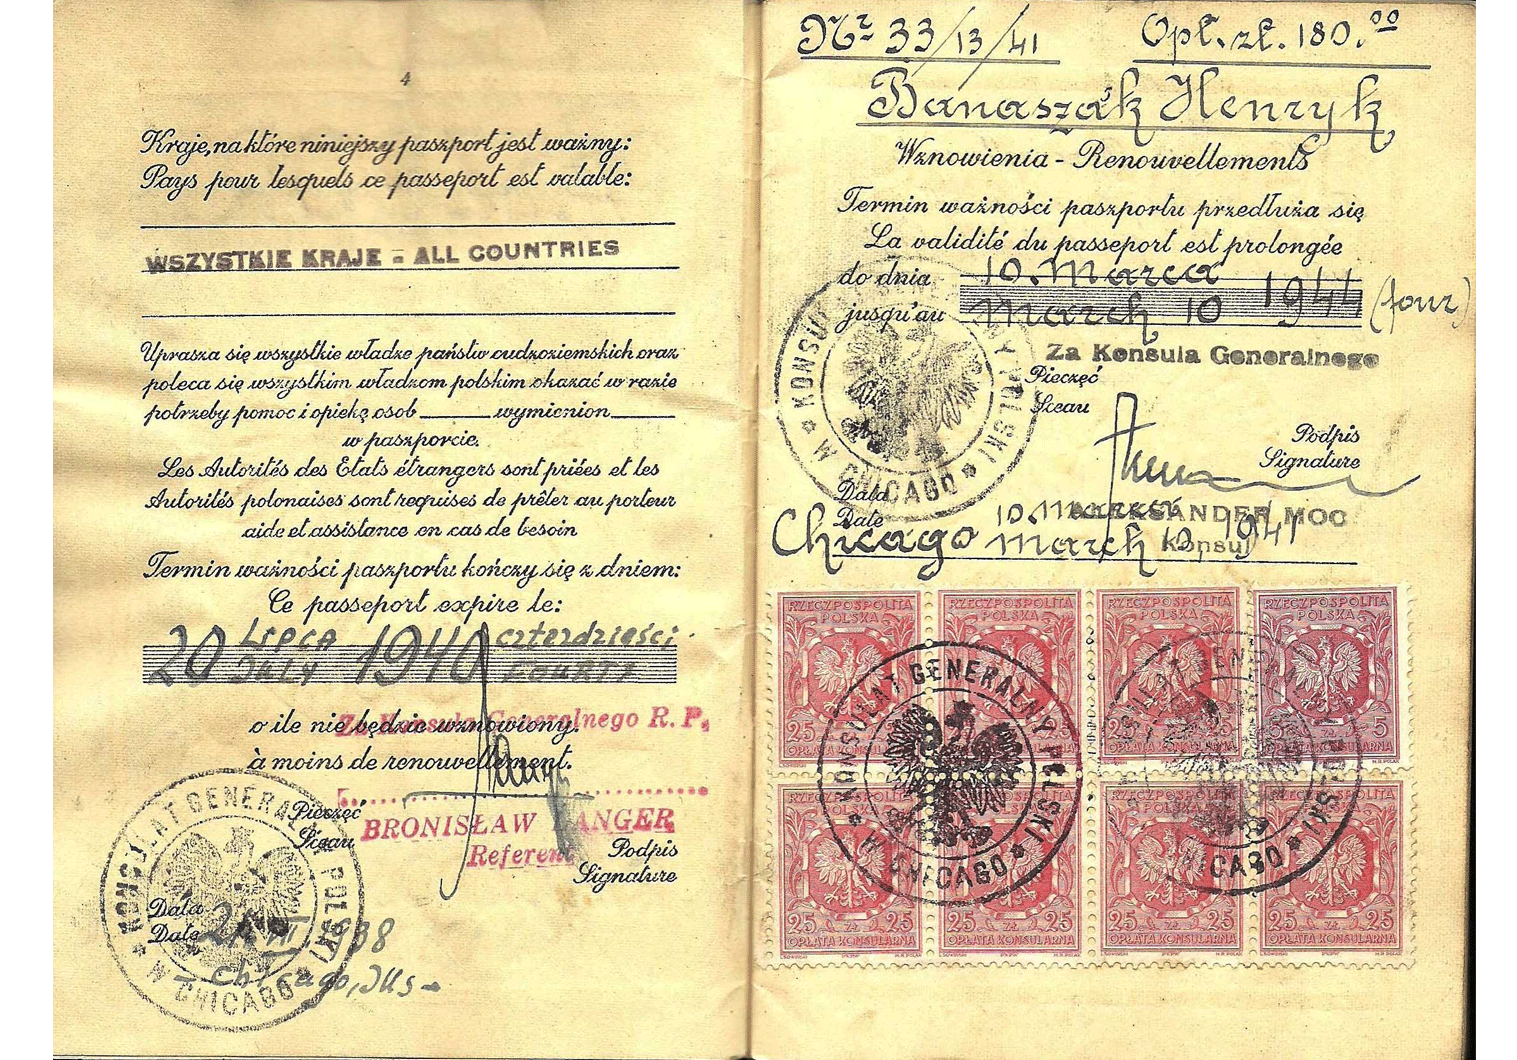 4
Kraje, na które niniejszy paszport jest ważny:
Pays pour lesquels ce passeport est valable:
WSZYSTKIE KRAJE - ALL COUNTRIES
Uprasza się wszystkie władze państw cudzoziemskich oraz
poleca się wszystkim władzom polskim okazać w razie
potrzeby pomoc i opiekę osob______wymienion______
w paszporcie.
Les Autorités des Etats étrangers sont priées et les
Autorités polonaises sont requises de prêter au porteur
aide et assistance en cas de besoin
Termin ważności paszportu kończy się z dniem:
Ce passeport expire le:
20 LIPCA 1940 czterdzieści
JULY FOURTY
o ile nie będzie wznowiony.
Za Konsula Generalnego R. P.
à moins de renouvellement.
BRONISŁAW
Referent
Pieczęć
Sceau
Podpis
Signature
KONSULAT GENERALNY POLSKI
W CHICAGO
Data
Date
1938
Chicago, Ills -
Nr 33/13/41 Opł. zł. 180.00
Banaszak Henryk
Wznowienia - Renouvellements
Termin ważności paszportu przedłuża się
La validité du passeport est prolongée
do dnia 10. Marca
jusqu'au March 10 1944 (four)
Za Konsula Generalnego
Pieczęć
Sceau
Podpis
Signature
KONSULAT GENERALNY POLSKI
W CHICAGO
Data
Date
10. marca
ALEKSANDER MOC
Chicago March 10 1941
Konsul
RZECZPOSPOLITA POLSKA
25 ZŁ 25
OPŁATA KONSULARNA
RZECZPOSPOLITA POLSKA
25 ZŁ 25
OPŁATA KONSULARNA
RZECZPOSPOLITA POLSKA
25 ZŁ 25
OPŁATA KONSULARNA
RZECZPOSPOLITA POLSKA
5 ZŁ 5
OPŁATA KONSULARNA
KONSULAT GENERALNY POLSKI
W CHICAGO
KONSULAT GENERALNY POLSKI
W CHICAGO
RZECZPOSPOLITA POLSKA
25 ZŁ 25
OPŁATA KONSULARNA
RZECZPOSPOLITA POLSKA
25 ZŁ 25
OPŁATA KONSULARNA
RZECZPOSPOLITA POLSKA
25 ZŁ 25
OPŁATA KONSULARNA
RZECZPOSPOLITA POLSKA
25 ZŁ 25
OPŁATA KONSULARNA